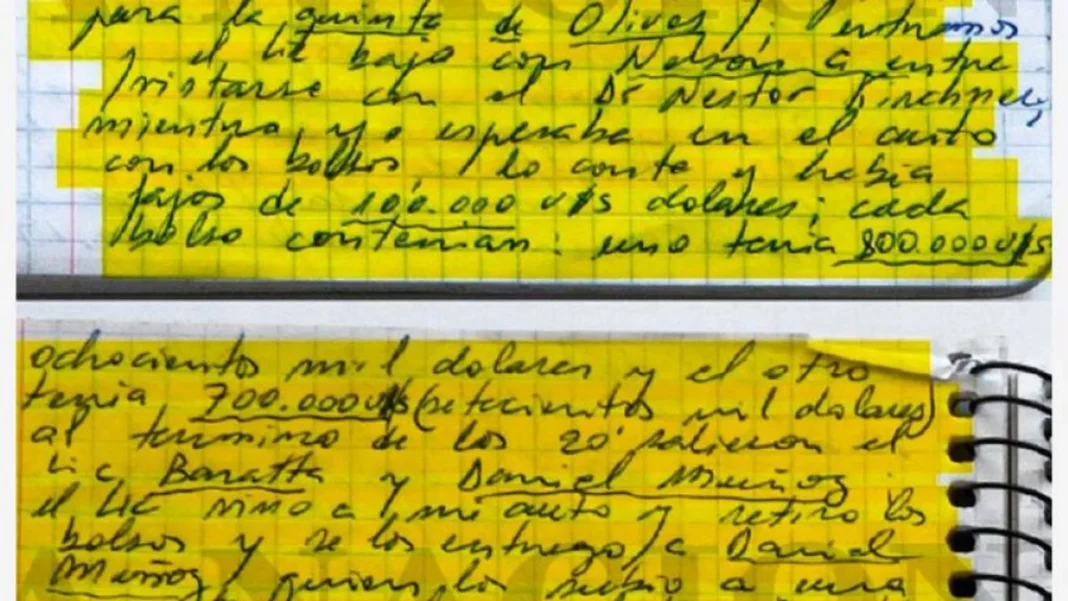 para la quinta de Olivos/; entramos
y el Lic bajo con Nelson a entre
/vistarse con el Dr Nestor Kirchner,
mientras, yo esperaba en el auto
con los bolsos, / lo conte y habia
fajos de 100.000 U$S dolares; cada
bolso contenian: uno tenia 800.000 U$S
ochocientos mil dolares y el otro
tenia 700.000 U$S (setecientos mil dolares)
al termino de los 20' salieron el
Lic Baratta y Daniel Muñoz
el Lic vino a mi auto y retiro los
bolsos y se los entrego/a Daniel
Muñoz/ quien los subio a una